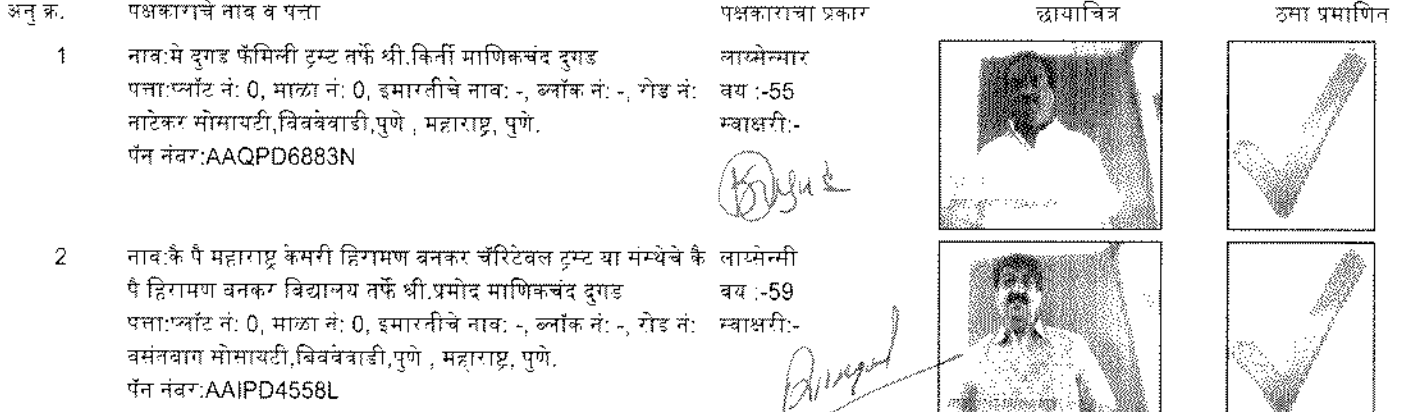 अनु क्र. पक्षकाराचे नाव व पत्ता पक्षकाराचा प्रकार छायाचित्र ठसा प्रमाणित
1 नाव:मे दुगड फॅमिली ट्रस्ट तर्फे श्री.किर्ती माणिकचंद दुगड लायसेन्सार
पत्ता:प्लॉट नं: 0, माळा नं: 0, इमारतीचे नाव: -, ब्लॉक नं: -, रोड नं: वय :-55
नाटेकर सोसायटी,बिबवेवाडी,पुणे , महाराष्ट्र, पुणे. स्वाक्षरी:-
पॅन नंबर:AAQPD6883N
2 नाव:कै पै महाराष्ट्र केसरी हिरामण बनकर चॅरिटेबल ट्रस्ट या संस्थेचे कै लायसेन्सी
पै हिरामण बनकर विद्यालय तर्फे श्री.प्रमोद माणिकचंद दुगड वय :-59
पत्ता:प्लॉट नं: 0, माळा नं: 0, इमारतीचे नाव: -, ब्लॉक नं: -, रोड नं: स्वाक्षरी:-
वसंतबाग सोसायटी,बिबवेवाडी,पुणे , महाराष्ट्र, पुणे.
पॅन नंबर:AAIPD4558L